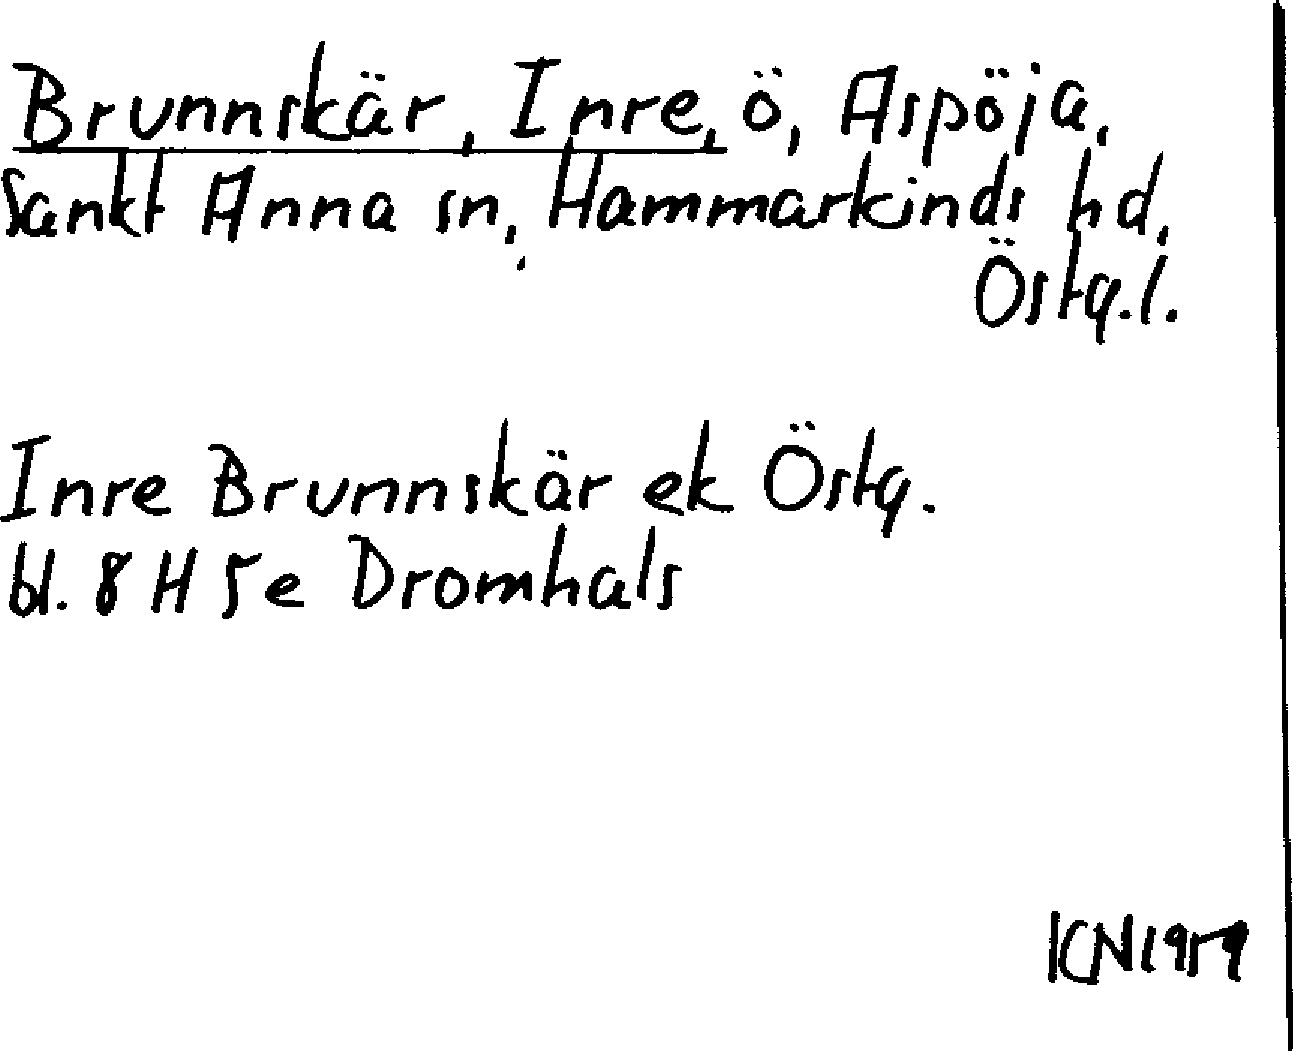 Brunnskär, Inre, ö, Aspöja,
Sankt Anna sn, Hammarkinds hd,
Östg.l.
Inre Brunnskär ek Östg.
bl. 8 H 5e Dromhals
KN 1959